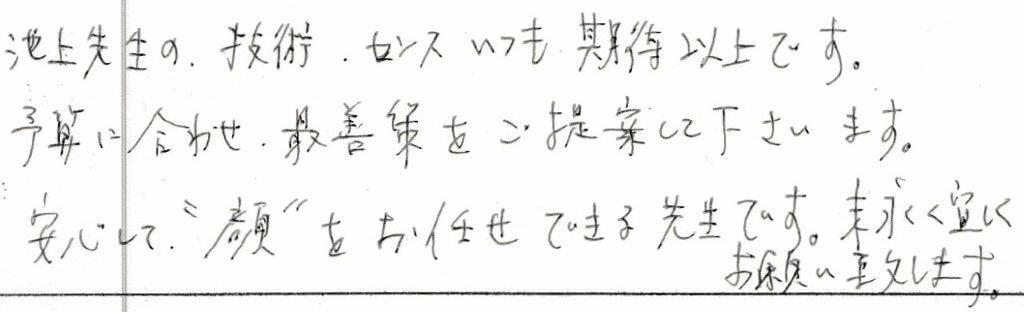 池上先生の、技術、センスいつも期待以上です。
予算に合わせ、最善策をご提案して下さいます。
安心して、"顔"をお任せできる先生です。末永く宜しく
お願い致します。